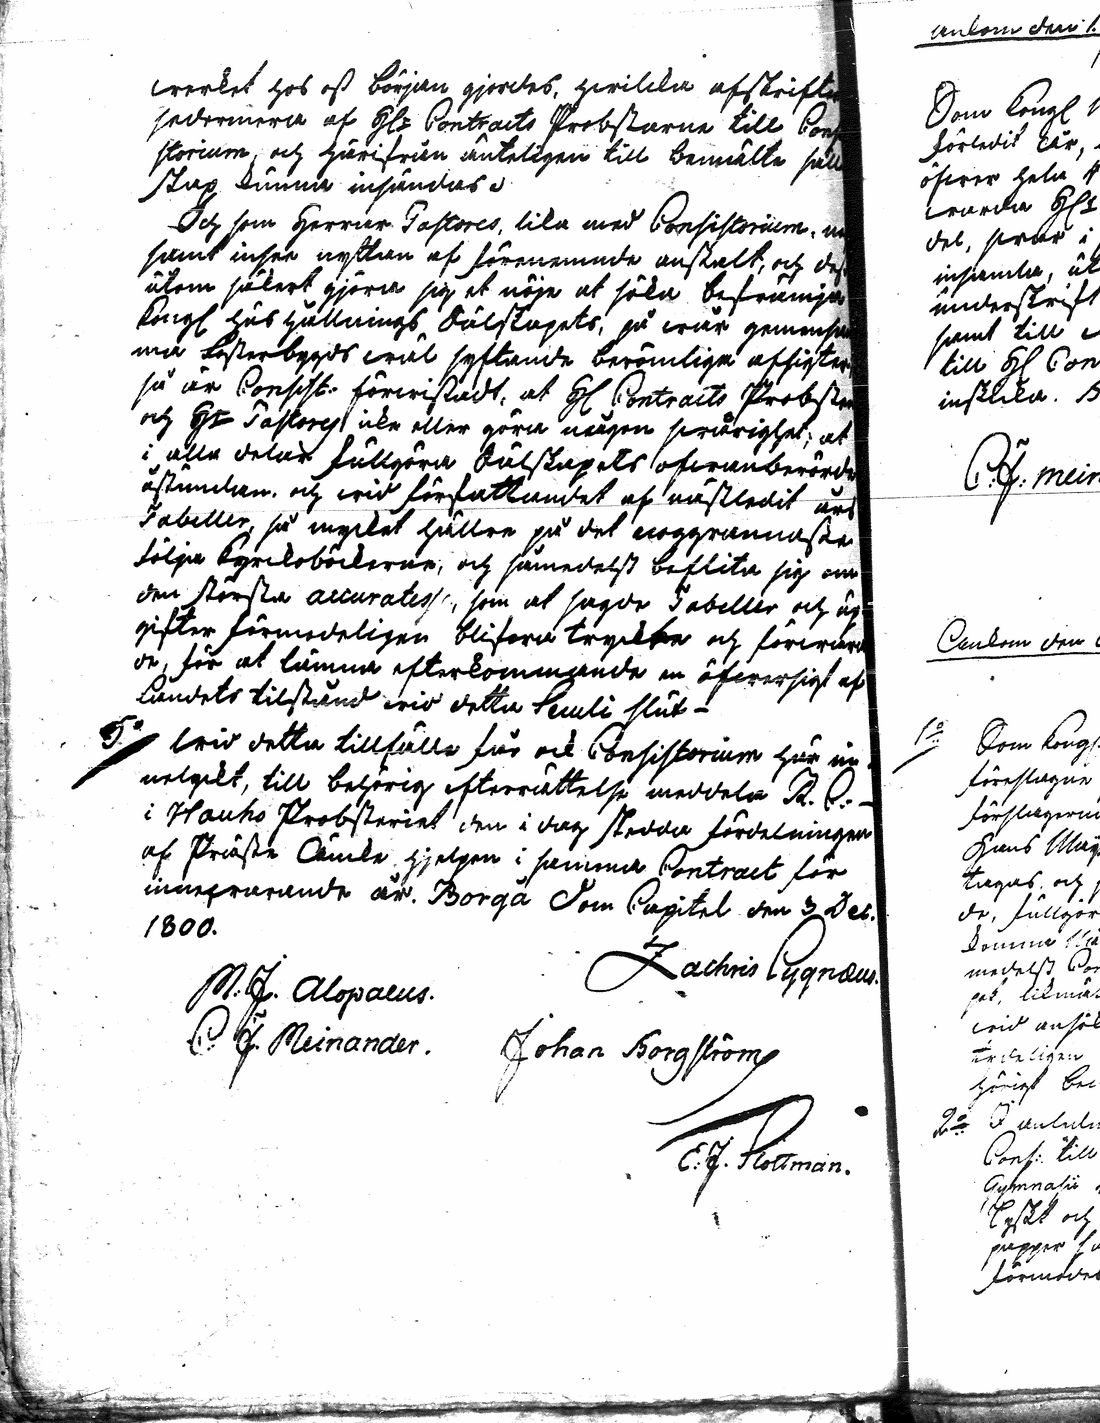 werket hos oss början gjordes, hvilcka afskrifter
sedermera af Hlr Contracts Probstarne till Con
storium, och härifrån änteligen till bemälte säll
skap kunna insändas.
Och som Herrar Pastores, lika med Consistorium,
samt inse nyttan af förenemnde anstalt, och des
utom säkert gjöra sig et nöje at söka befrämja
Kongl Hus Hållnings Sälskapets, på vår gemensa
ma Fosterbygds wäl syftande berömliga afsigter
så är Consist: förvissadt, at Hl Contracts Probstar
och Hr Pastores icke eller göra någon svårighet, at
i alla delar fullgöra Sälskapets ofvanberörde
åstundan, och wid författandet af nästledit års
Tabeller, så mycket hällre på det noggrannaste
följa Kyrckoböckerne, och sämedelst beflita sig om
den största accuratess, som at sagde Tabeller och up
gifter förmodeligen blifva tryckte och förvara
de, för at lämna efterkommande en öfversigt af
Landets tilstånd wid detta Seculi slut –
5o Wid detta tillfälle får ock Consistorium här in
nelyckt, till behörig efterrättelse meddela V. P. –
i Hauho Probsteriet den i dag skedda fördelningen
af Präste Encke hjelpen i samma Contract för
innevarande år. Borgå Dom Capitel den 3 Dec.
1800.
Zachris Cygnæus.
M. J. Alopaeus.
C. J. Meinander.
Johan Borgström
E. J. Flottman.
ankom den 1.
Som Kongl
förledit år,
öfver hela
warda Hlr
del, hvar i
insamla, ut
underskrift
samt till
till Hl Con
inskicka. B
C. J. Mein
Ankom den
1o Som Kongl
föreslagne
förslagern
Hans Maj
tagas, och
de, fullgör
komma
medelst Con
wid
2o I anledn
Cons: till
Gymnasii
Tyskt och
papper
förmodel